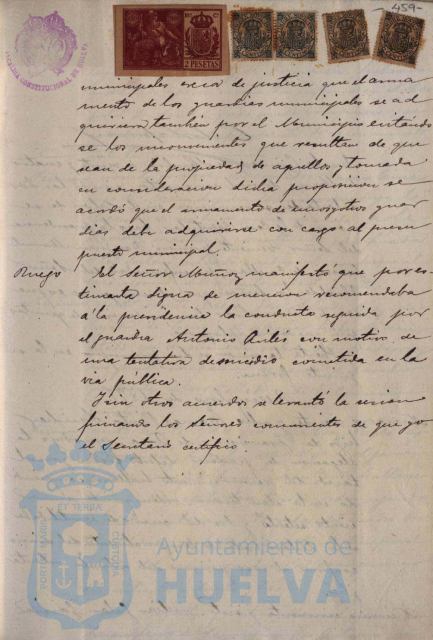 459-
ALCALDIA CONSTITUCIONAL DE HUELVA
2 PESETAS
municipales cree de justicia que el arma
mento de los guardias municipales se ad
quiriera tambien por el Municipio evitando
se los inconvenientes que resultan de que
sean de la propiedad de aquellos, y tomada
en consideracion dicha proposicion se
acordó que el armamento de
dias debe adquirirse con cargo al presu
puesto municipal.
Ruego
El Señor Muñoz manifestó que por es
timarla digna de mencion recomendaba
á la presidencia la conducta seguida por
el guardia Antonio con motivo de
una tentativa de suicidio cometida en la
via pública.
Y sin otros acuerdos se levantó la sesion
firmando los Señores concurrentes de que yo
el Secretario certifico.
PORTUS MARIS ET TERRAE CUSTODIA
Ayuntamiento de
HUELVA